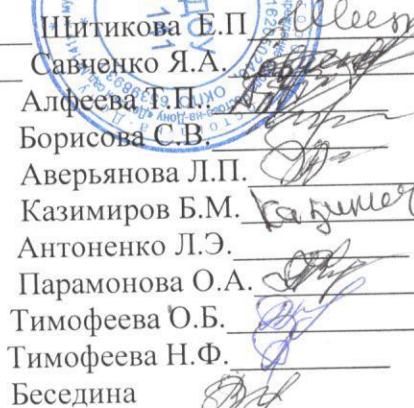 Шитикова Е.П
Савченко Я.А.
Алфеева Т.П.
Борисова С.В.
Аверьянова Л.П.
Казимиров Б.М.
Антоненко Л.Э.
Парамонова О.А.
Тимофеева О.Б.
Тимофеева Н.Ф.
Беседина